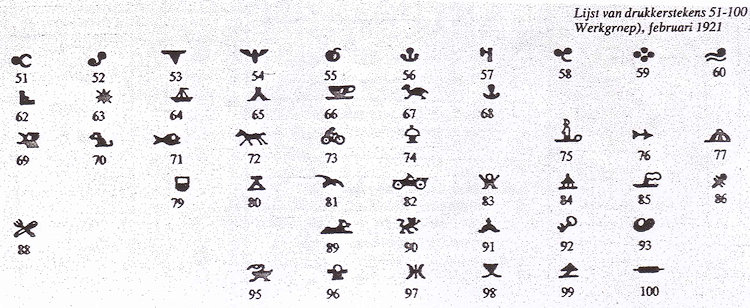 Lijst van drukkerstekens 51-100
Werkgroep), februari 1921
51 52 53 54 55 56 57 58 59 60
62 63 64 65 66 67 68
69 70 71 72 73 74 75 76 77
79 80 81 82 83 84 85 86
88 89 90 91 92 93
95 96 97 98 99 100